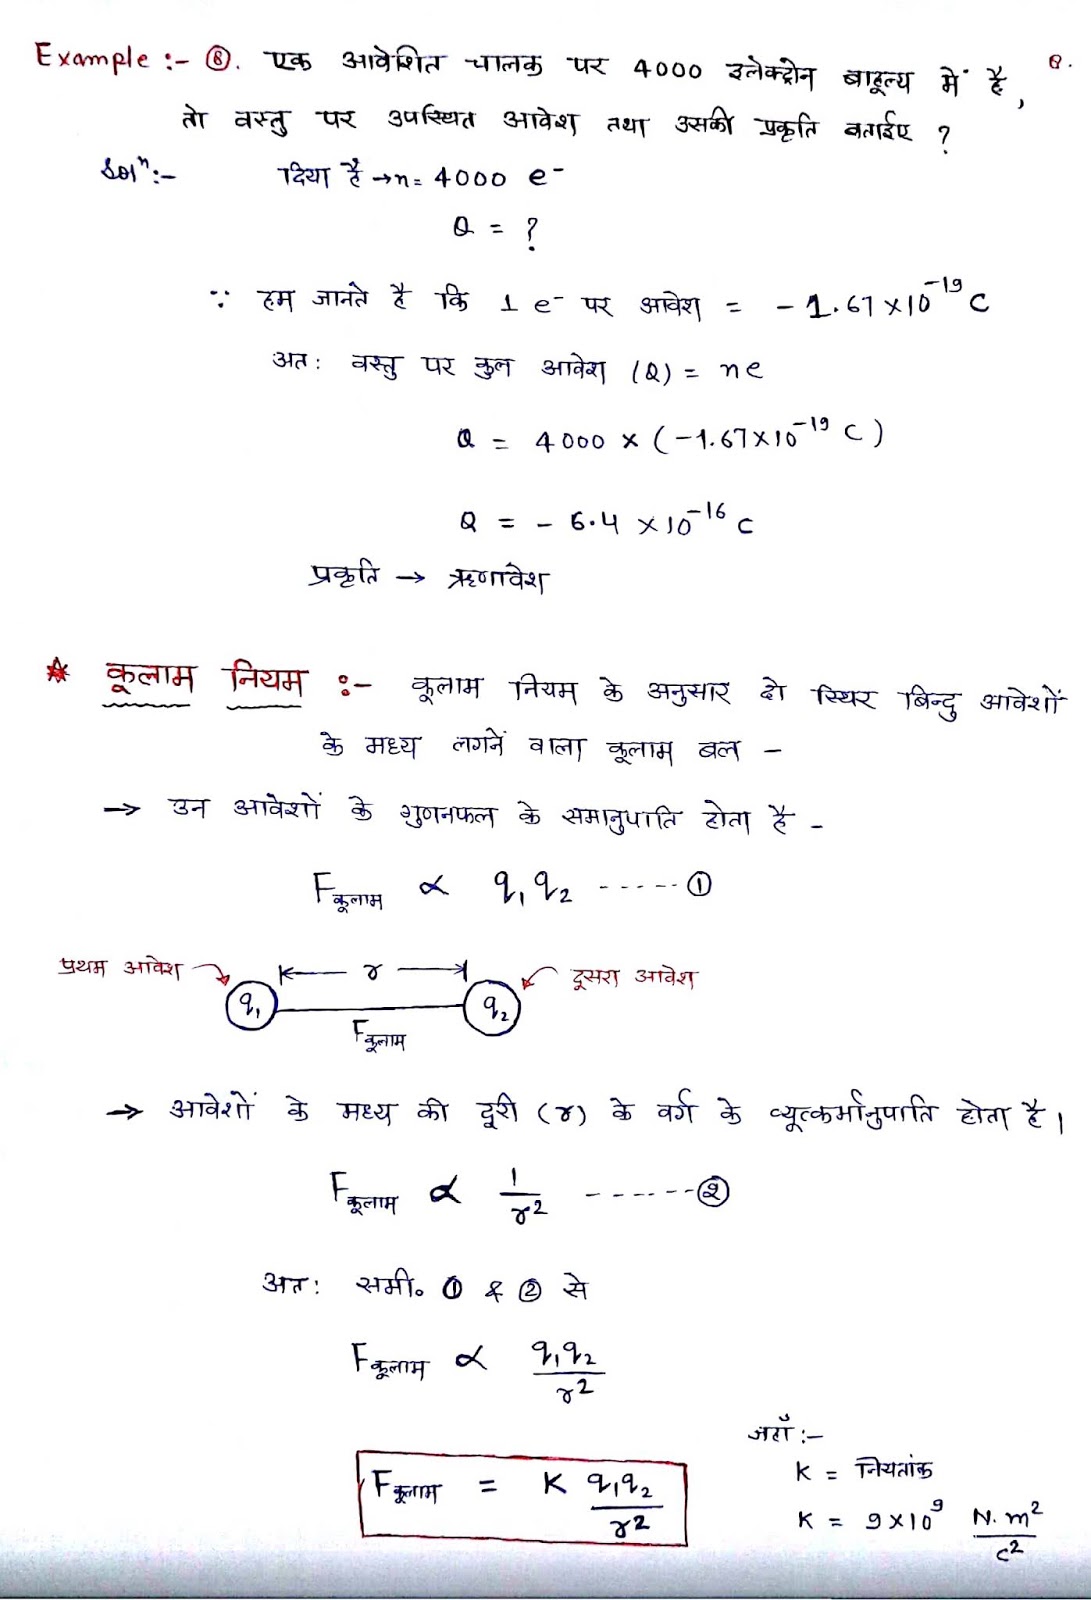 Example :- ⑧. एक आवेशित चालक पर 4000 इलेक्ट्रोन बाहूल्य में है,
तो वस्तु पर उपस्थित आवेश तथा उसकी प्रकृति बताईए ?
Solⁿ :- दिया है → n = 4000 e⁻
Q = ?
∵ हम जानते है कि 1 e⁻ पर आवेश = - 1.67 × 10⁻¹⁹ C
अतः वस्तु पर कुल आवेश (Q) = ne
Q = 4000 × (-1.67 × 10⁻¹⁹ C)
Q = - 6.4 × 10⁻¹⁶ C
प्रकृति → ऋणावेश
* कूलाम नियम :- कूलाम नियम के अनुसार दो स्थिर बिन्दु आवेशों
के मध्य लगनें वाला कूलाम बल -
→ उन आवेशों के गुणनफल के समानुपाति होता है -
F कूलाम ∝ q₁ q₂ ------ ①
प्रथम आवेश r दूसरा आवेश
q₁ q₂
F कूलाम
→ आवेशों के मध्य की दूरी (r) के वर्ग के व्यूत्कर्मानुपाति होता है।
F कूलाम ∝ 1/r² ------- ②
अतः समी. ① & ② से
F कूलाम ∝ q₁q₂/r²
जहाँ :-
F कूलाम = K q₁q₂/r² K = नियतांक
K = 9 × 10⁹ N.m²/C²